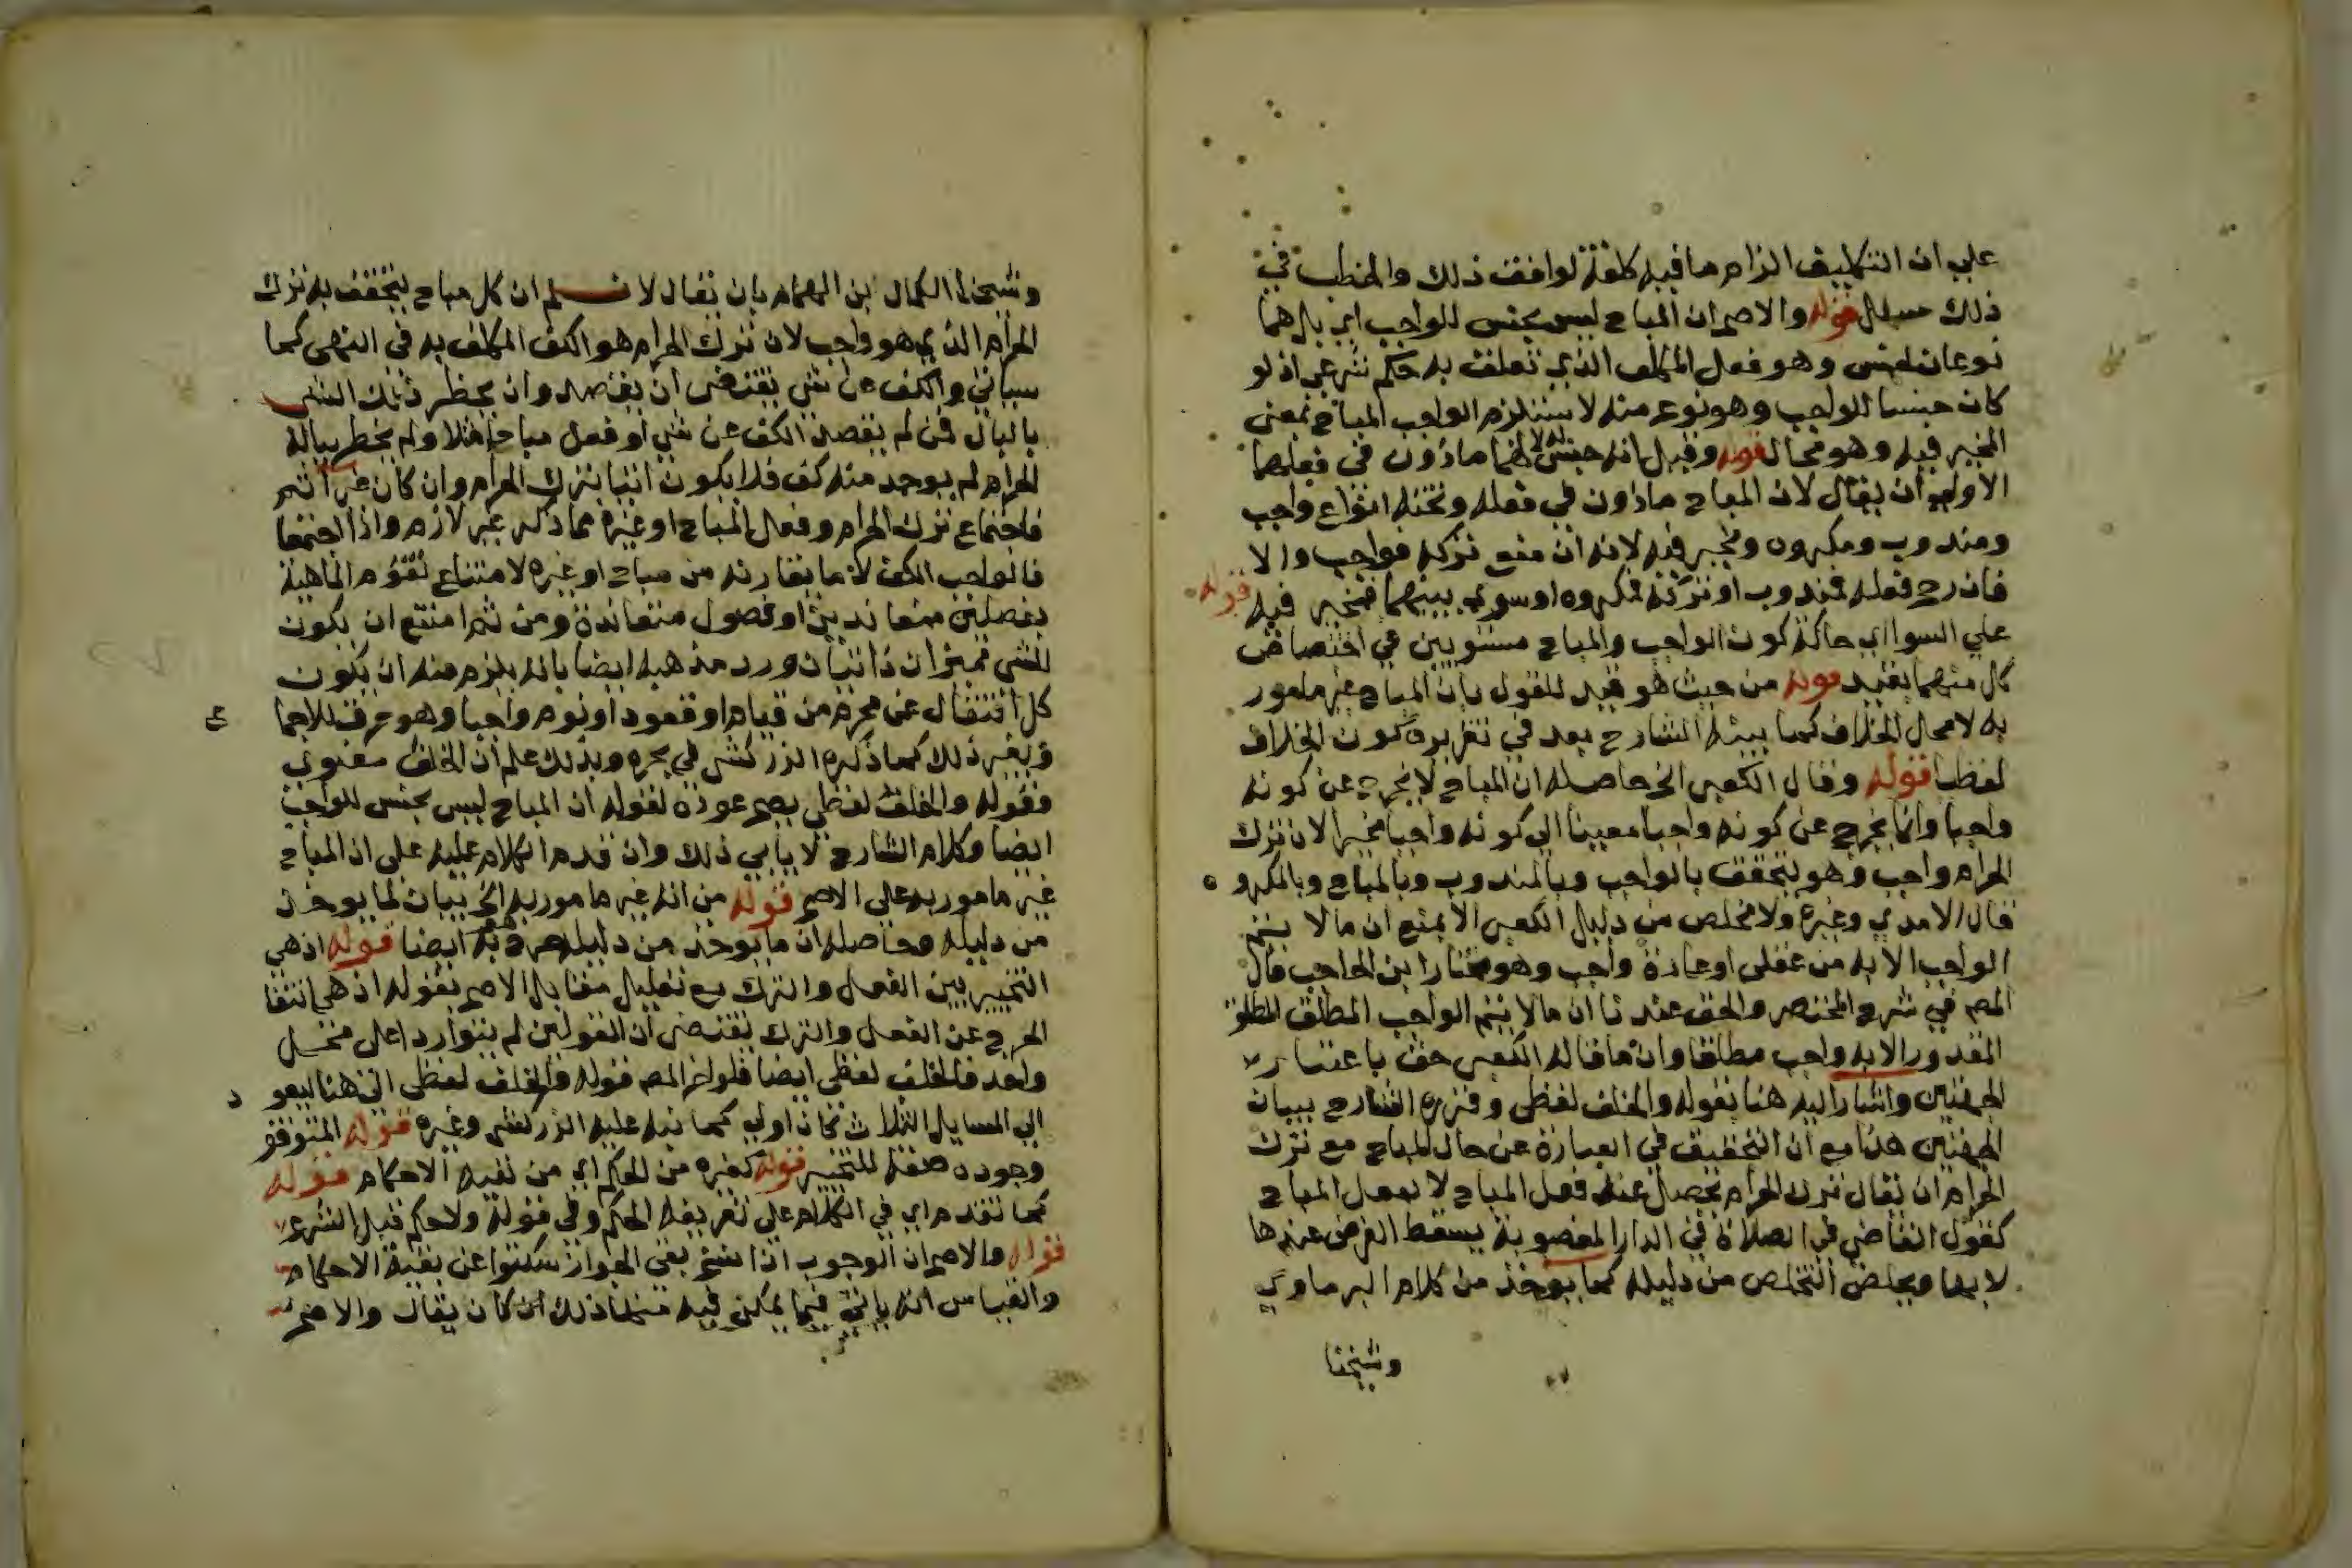 علي ان التكليف الزام ما فيه كلفة لوافق ذلك والخطب في
ذلك سهل قوله والاصح ان المباح ليس بجنس للواجب اي بل هما
نوعان لجنس وهو فعل المكلف الذي تعلق به حكم شرعي اذ لو
كان جنسا للواجب وهو نوع منه لاستلزم الواجب المباح بمعنى
المخير فيه وهو محال قوله وقيل انه جنس له لانهما ماذون في فعلهما
الاولي ان يقال لان المباح ماذون في فعله وتحته انواع واجب
ومندوب ومكروه ومخير فيه لانه ان منع تركه فواجب والا
فان رجح فعله فمندوب او تركه فمكروه او سوي بينهما فمخير فيه قوله
علي السوا اي حالة كون الواجب والمباح مستويين في اختصاص
كل منهما بقيد قوله من حيث هو قيد للقول بان المباح غير مامور
به لا محال الخلاف كما بينه الشارح بعد في تقريره كون الخلاف
لفظيا قوله وقال الكعبي الخ حاصله ان المباح لا يخرج عن كونه
واجبا وانما يخرج عن كونه واجبا معينا الي كونه واجبا مخيرا لان ترك
الحرام واجب وهو يتحقق بالواجب وبالمندوب وبالمباح وبالمكرو ه
قال الامدي وغيره ولا مخلص من دليل الكعبي الا بمنع ان ما لا يتم
الواجب الا به من عقلي او عادة واجب وهو مختار ابن الحاجب قال
المص في شرح المختصر والحق عندنا ان ما لا يتم الواجب المطلق المطلق
المقدور الا به واجب مطلقا وان ما قاله الكعبي حق باعتبار
الجهتين واشار اليه هنا بقوله والخلف لفظي وقرره الشارح ببيان
الجهتين هذا مع ان التحقيق في العبارة عن حال المباح مع ترك
الحرام ان يقال ترك الحرام يحصل عند فعل المباح لا بفعل المباح
كقول القاضي في الصلاة في الدار المغصوبة يسقط الفرض عندها
لا بها ويخلص التخلص من دليله كما يوخذ من كلام البرماوي
وشيخنا
وشيخنا الكمال ابن الهمام بان يقال لا نسلم ان كل مباح يتحقق به ترك
الحرام الذي هو واجب لان ترك الحرام هو الكف المكلف به في النهي كما
سياتي والكف عن شي يقتضي ان يقصد وان يحظر ذلك الشي
بالبال فمن لم يقصد الكف عن شي او فعل مباحا مثلا ولم يخطر بباله
الحرام لم يوجد منه كف فلا يكون اتيا بترك الحرام وان كان غير اثم
فاجتماع ترك الحرام وفعل المباح او غيره مما ذكر غير لازم واذا اجتمعا
فالواجب الكف لا ما يقارنه من مباح او غيره لامتناع تقوم الماهية
بفصلين متعاندين او فصول متعاندة ومن ثم امتنع ان يكون
للشي مميزان ذاتيان ورد مذهبه ايضا بانه يلزم منه ان يكون
كل انتقال عن محرم من قيام او قعود او نوم واجبا وهو خرق للاجما ع
وبغير ذلك كما ذكره الزركشي في بحره وبذلك علم ان الخلف معنوي
فقوله والخلف لفظي يصح عوده لقوله ان المباح ليس بجنس للواجب
ايضا وكلام الشارح لا يابي ذلك وان قدم الكلام عليه على ان المباح
غير مامور به على الاصح قوله من انه غير مامور به الخ بيان لما يوخذ
من دليله وحاصله ان ما يوخذ من دليله صرح به ايضا قوله اذ هي
التخيير بين الفعل والترك مع تعليل مقابل الاصح بقوله اذ هي انتفا
الحرج عن الفعل والترك يقتضي ان القولين لم يتواردا على محل
واحد فالخلف لفظي ايضا فلو اخر المص قوله والخلف لفظي الى هنا ليعو د
الي المسايل الثلاث كان اولي كما نبه عليه الزركشي وغيره قوله المتوقف
وجوده صفة للتخيير قوله كغيره من الحكم اي من بقية الاحكام قوله
كما تقدم اي في الكلام علي تعريف الحكم وفي قوله ولا حكم قبل الشرع
قوله والاصح ان الوجوب اذا نسخ بقي الجواز سكتوا عن بقية الاحكام
والقياس انه ياتي فيما يمكن فيه منها ذلك كان يقال والاصح